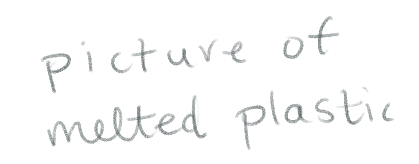 picture of
melted plastic